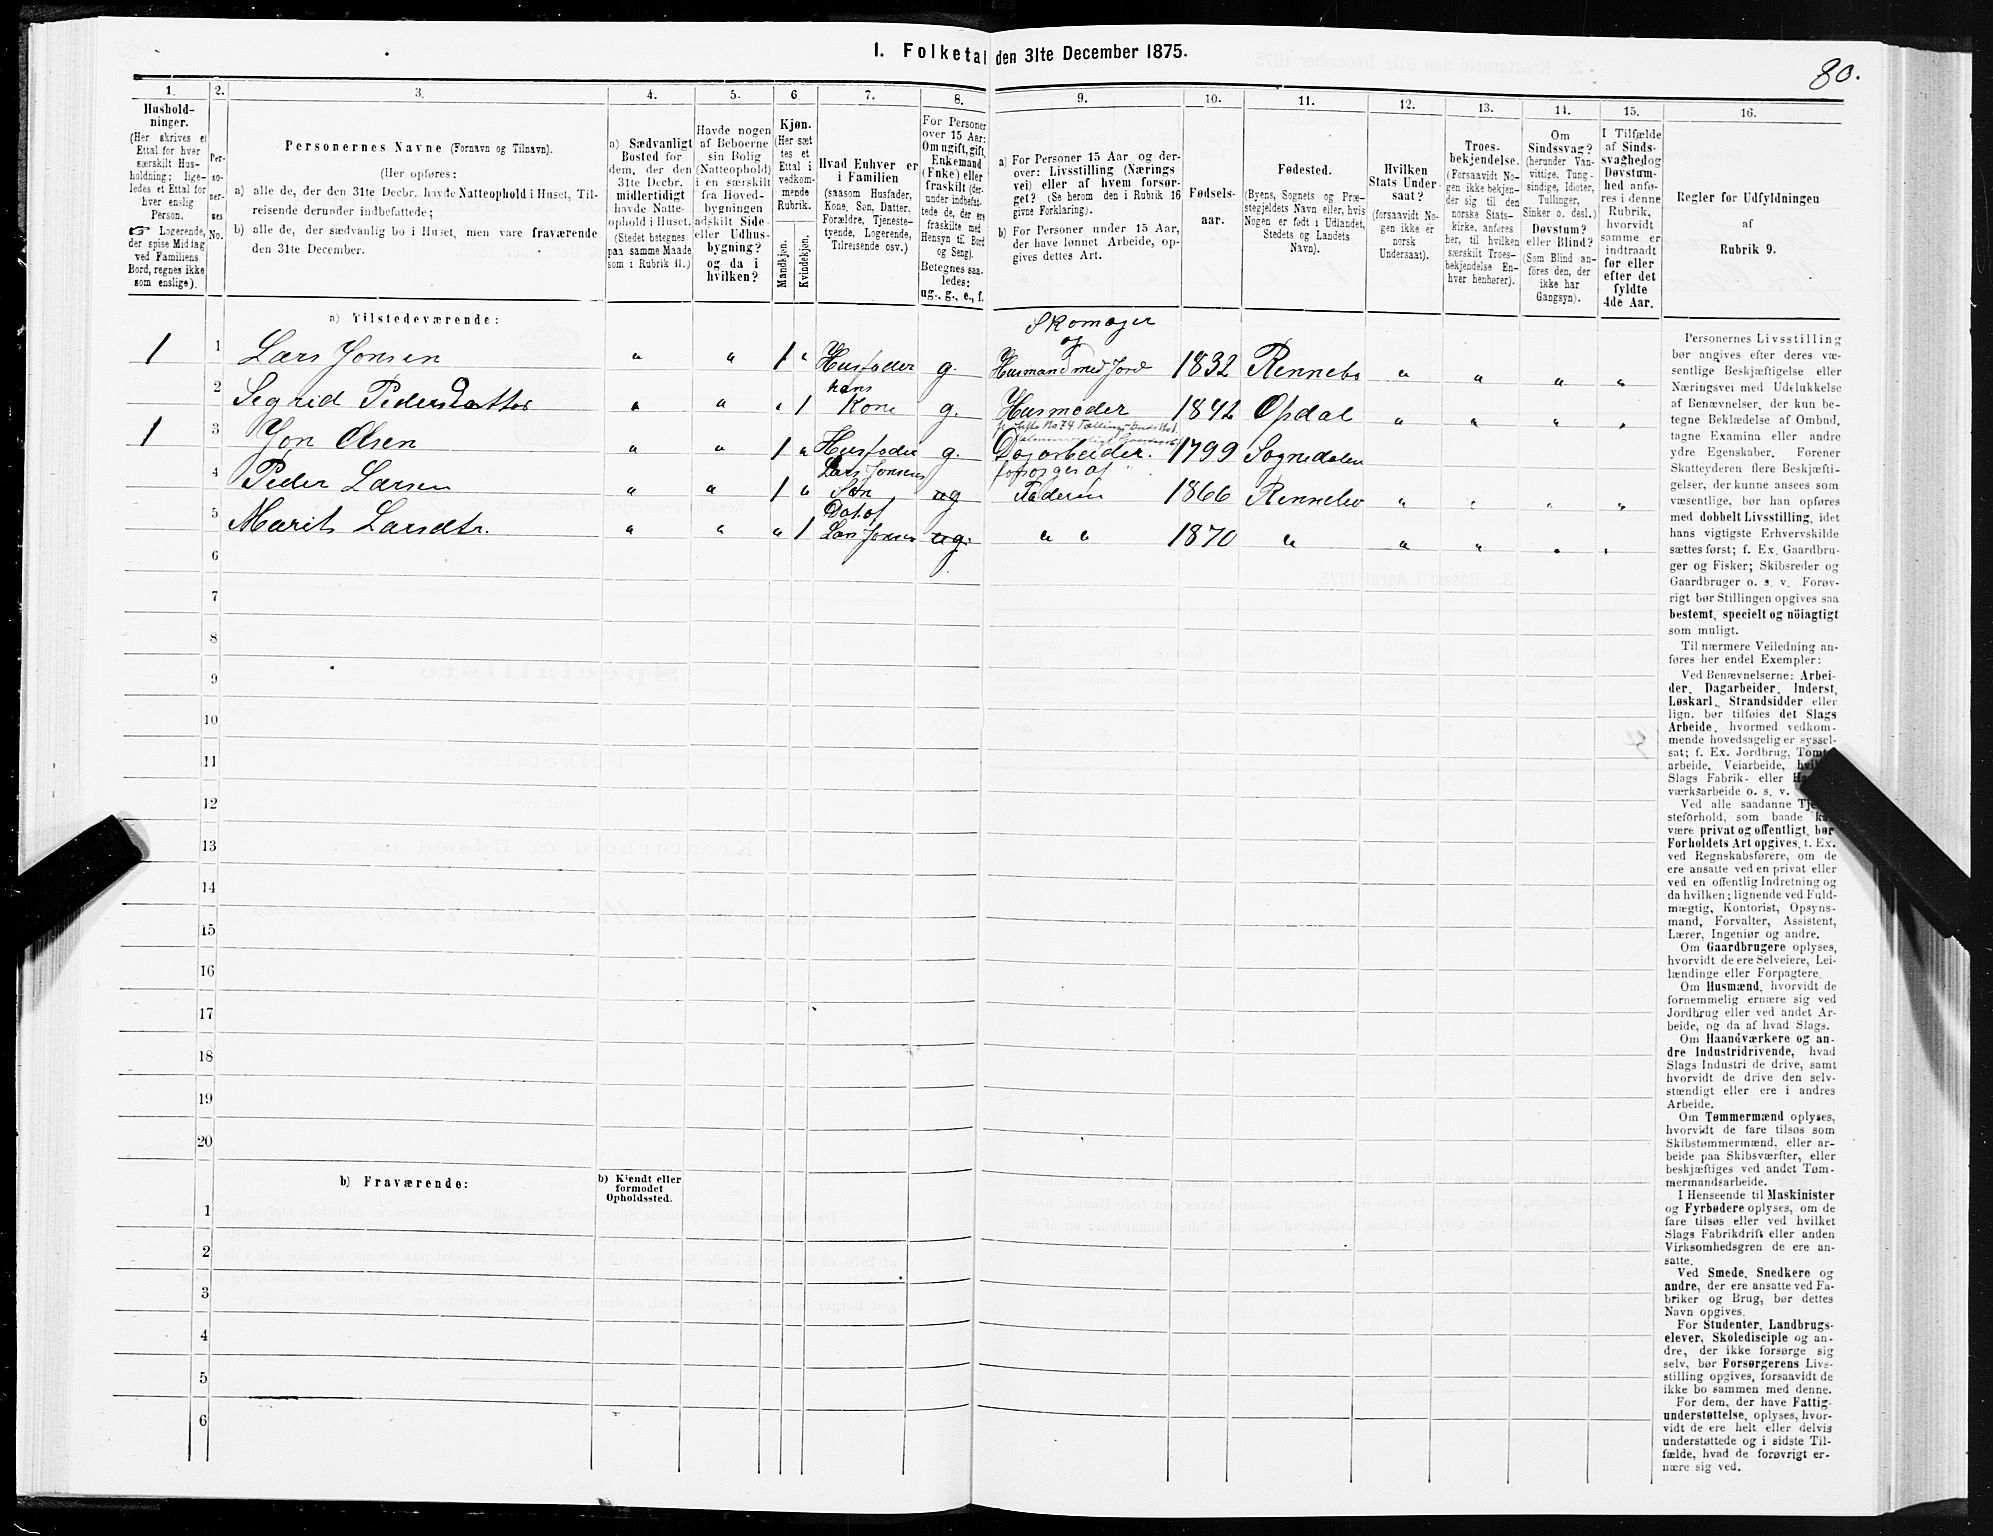 I. Folketal den 31te December 1875.
80.
1.
2.
3.
4.
5.
6.
7.
8.
9.
10.
11.
12.
13.
14.
15.
16.
Husholdninger.
(Her skrives et
Ettal for hver
særskilt Hus-
holdning; lige-
ledes et Ettal for
hver enslig
Person.
☞ Logerende,
der spise Middag
ved Familiens
Bord, regnes ikke
som enslige).
Per-
so-
ner-
nes
No.
Personernes Navne (Fornavn og Tilnavn).
(Her opføres:
a) alle de, der den 31te Decbr. havde Natteophold i Huset, Til-
reisende derunder indbefattede;
b) alle de, der sædvanlig bo i Huset, men vare fraværende
den 31te December.
a) Sædvanligt
Bosted for
dem, der den
31te Decbr.
midlertidigt
havde Natte-
ophold i Huset.
(Stedet betegnes
paa samme Maade
som i Rubrik 11.)
Havde nogen
af Beboerne
sin Bolig
(Natteophold)
i en særskilt
fra Hoved-
bygningen
adskilt Side-
eller Udhus-
bygning?
og da i
hvilken?
Kjøn.
(Her sæt
tes et
Ettal i
vedkom-
mende
Rubrik.
Mandkjøn.
Kvindekjøn.
Hvad Enhver er
i Familien
(saasom Husfader,
Kone, Søn, Datter,
Forældre, Tjeneste-
tyende, Logerende,
Tilreisende osv.)
For Personer
over 15 Aar:
Om ugift, gift,
Enkemand
(Enke) eller
fraskilt (der-
under indbefat-
tede de, der ere
fraskilte med
Hensyn til Bord
og Seng).
Betegnes saa-
ledes:
ug., g., e., f.
a) For Personer 15 Aar og der-
over: Livsstilling (Nærings
vei) eller af hvem forsør-
get? (Se herom den i Rubrik 16
givne Forklaring).
b) For Personer under 15 Aar,
der have lønnet Arbeide, op-
gives dettes Art.
Fødsels-
aar.
Fødested.
(Byens, Sognets og Præ-
stegjeldets Navn eller, hvis
Nogen er født i Udlandet,
Stedets og Landets
Navn).
Hvilken
Stats Under-
saat?
(forsaavidt No-
gen ikke er
norsk
Undersaat).
Troes-
bekjendelse.
(Forsaavidt No-
gen ikke bekjen-
der sig til den
norske Stats-
kirke, anføres
her, til hvilken
særskilt Troes-
bekjendelse En-
hver henhører).
Om
Sindssvag?
(herunder Van-
vittige, Tung-
sindige, Idioter,
Tullinger,
Sinker o. desl.)
Døvstum?
eller Blind?
(Som Blind an-
føres den, der
ikke har
Gangsyn).
I Tilfælde
af Sinds-
svaghed og
Døvstum-
hed anfø-
res i denne
Rubrik,
hvorvidt
samme er
indtraadt
før eller
efter det
fyldte
4de Aar.
Regler for Udfyldningen
af
Rubrik 9.
a) Tilstedeværende:
1 1 Lars Jonsen " " 1 " Husfader g. Skomager og Husmand med Jord 1832 Rennebo " " " "
2 Segrid Pedersdatter " " " 1 hans Kone g. Husmoder 1842 Opdal " " " "
1 3 Jon Olsen " " 1 " Husfader g. Dagarbeider. 1799 Sognedalen
4 Peder Larsen " " 1 " Lars Jonsens Søn ug forsørges af Faderen 1866 Rennebo " " " "
5 Marit Larsdtr. " " " 1 Dat. af Lars Jonsen ug. " " 1870 " " " " "
6
7
8
9
10
11
12
13
14
15
16
17
18
19
20
b) Fraværende:
b) Kjendt eller
formodet
Opholdssted.
1
2
3
4
5
6
Personernes Livsstilling
bør angives efter deres væ-
sentlige Beskjæftigelse eller
Næringsvei med Udelukkelse
af Benævnelser, der kun be-
tegne Beklædelse af Ombud,
tagne Examina eller andre
ydre Egenskaber. Forener
Skatteyderen flere Beskjæfti-
gelser, der kunne ansees som
væsentlige, bør han opføres
med dobbelt Livsstilling, idet
hans vigtigste Erhvervskilde
sættes først; f. Ex. Gaardbru-
ger og Fisker; Skibsreder og
Gaardbruger o. s. v. Forøv-
rigt bør Stillingen opgives saa
bestemt, specielt og nöiagtigt
som muligt.
Til nærmere Veiledning an-
føres her endel Exempler:
Ved Benævnelserne: Arbei-
der, Dagarbeider, Inderst,
Løskarl, Strandsidder eller
lign. bør tilføies det Slags
Arbeide, hvormed vedkom-
mende hovedsagelig er syssel-
sat; f. Ex. Jordbrug, Tomte-
arbeide, Veiarbeide, hvilket
Slags Fabrik- eller
værksarbeide o. s. v.
Ved alle saadanne Tje-
steforhold, som baade kan
være privat og offentligt, bør
Forholdets Art opgives, f. Ex.
ved Regnskabsførere, om de
ere ansatte ved en privat eller
ved en offentlig Indretning og
da hvilken; lignende ved Fuld-
mægtig, Kontorist, Opsyns-
mand, Forvalter, Assistent,
Lærer, Ingeniør og andre.
Om Gaardbrugere oplyses,
hvorvidt de ere Selveiere, Lei-
lændinge eller Forpagtere.
Om Husmænd, hvorvidt de
fornemmelig ernære sig ved
Jordbrug eller ved andet Ar-
beide, og da af hvad Slags.
Om Haandværkere og an-
dre Industridrivende, hvad
Slags Industri de drive, samt
hvorvidt de drive den selv-
stændigt eller ere i andres
Arbeide.
Om Tømmermænd oplyses,
hvorvidt de fare tilsøs som
Skibstømmermænd, eller ar-
beide paa Skibsværfter, eller
beskjæftiges ved andet Tøm-
mermandsarbeide.
I Henseende til Maskinister
og Fyrbødere oplyses, om de
fare tilsøs eller ved hvilket
Slags Fabrikdrift eller anden
Virksomhedsgren de ere an-
satte.
Ved Smede, Snedkere og
andre, der ere ansatte ved Fa-
briker og Brug, bør dettes
Navn opgives.
For Studenter, Landbrugs-
elever, Skoledisciple og an-
dre, der ikke forsørge sig
selv, bør Forsørgerens Livs-
stilling opgives, forsaavidt de
ikke bo sammen med denne.
For dem, der have Fattig-
understøttelse, oplyses, hvor-
vidt de ere helt eller delvis
understøttede og i sidste Til-
fælde, hvad de forøvrigt er-
nære sig ved.